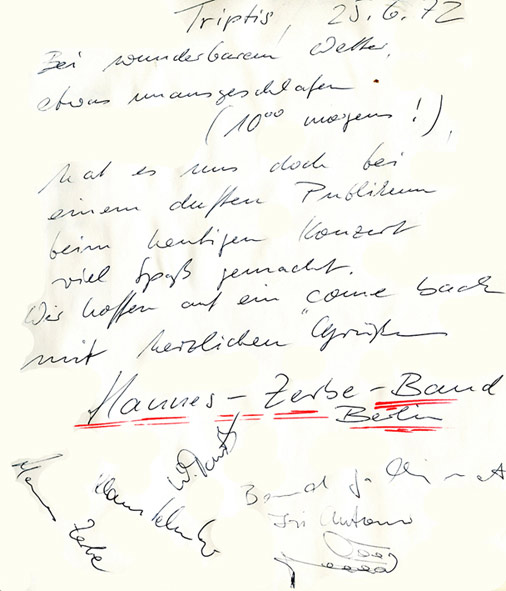 Triptis, 25.6.72
Bei wunderbarem Wetter,
etwas unausgeschlafen
(10⁰⁰ morgens!),
hat es uns doch bei
einem duften Publikum
beim heutigen Konzert
viel Spaß gemacht.
Wir hoffen auf ein come back
mit herzlichen Grüßen
Hannes-Zerbe-Band
Berlin
Hannes Zerbe